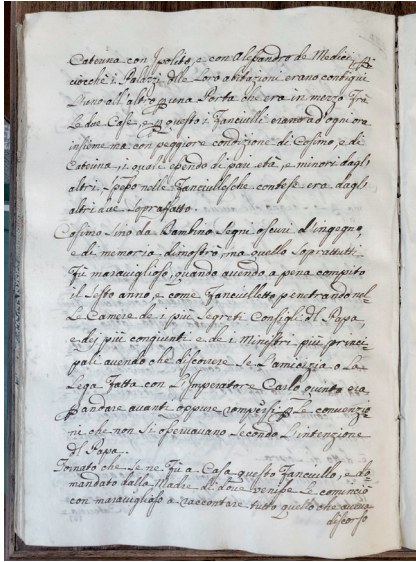 Caterina con Ipolito, e con Alessandro de Medici, p
ciocchè i Palazzi delle Loro abitazioni erano contigui
L'uno all'altro p una Porta che era in mezzo frà
Le due Case, e p questo i Fanciulli erano ad ogni ore
insieme ma con peggiore condizione di Cosimo, e di
Caterina, i quali essendo di pari età, e minori dagli
altri, spesso nelle Fanciullesche contese era dagli
altri due sopraffatto
Cosimo sino da Bambino segni oscuri d'ingegno
e di memoria dimostrò, ma quello soprattutti
Fù maraviglioso, quando avendo a pena compito
il sesto anno, e come Fanciulletto penetrando nel-
Le Camere de i più Segreti Consigli dl Papa,
e dej più congiunti e de i Ministri più princi-
pali avendo che discorere se L'amicizia, o La
Lega Fatta con L'Imperatore Carlo quinto era
p andare avanti oppure rompersi p Le convenzio-
ni che non si osservavano secondo L'intenzione
dl Papa.
Tornato che se ne Fù a Casa questo Fanciullo, e do-
mandato dalla Madre di dove venisse Le cominciò
con maraviglioso a raccontare tutto quello che aveva
discorso